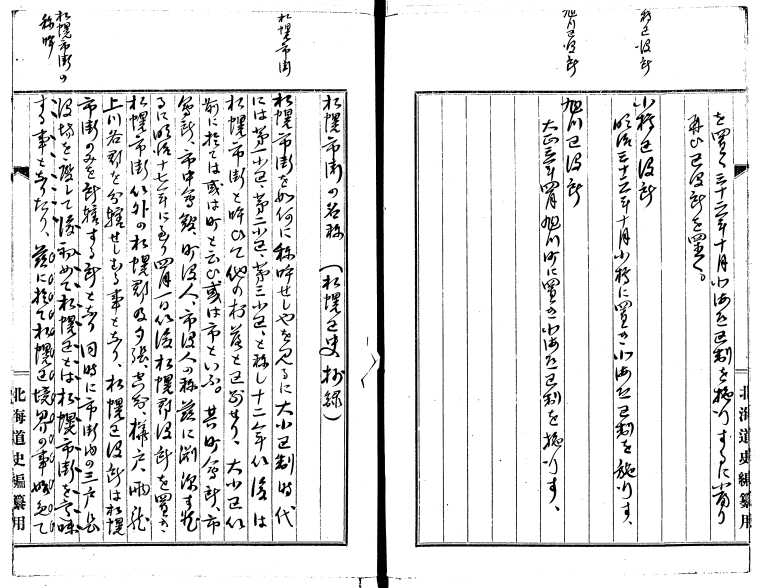 小樽区役所
旭川区役所
を置く三十二年十月北海道区制を施行するに当り
再び区役所を置く。
小樽区役所
明治三十二年十月小樽に置き北海道区制を施行す、
旭川区役所
大正三年四月旭川町に置き北海道区制を施行す、
北海道史編纂用
札幌市街
札幌市街の
称呼
札幌市街の名称（札幌区史抄録）
札幌市街を如何に称呼せしやを見るに大小区制時代
には第一小区、第二小区、第三小区、と称し十二年以後は
札幌市街と呼びて他の村落と区別せり、大小区以
前に於ては或は町と云ひ或は市といふ。其町会所、市
会所、市中会議、町役人、市役人の称茲に淵源す
るに明治十七年に至り四月一日以後札幌郡役所を置き
札幌市街以外の札幌郡及夕張、空知、樺戸、雨竜
上川各郡を分轄せしむる事となり、札幌区役所は札幌
市街のみを所轄する所となり同時に市街内の三戸長
役場を廃して後初めて札幌区とは札幌市街を意味
する事となりたり、茲に於て札幌区境界の事始めて
北海道史編纂用